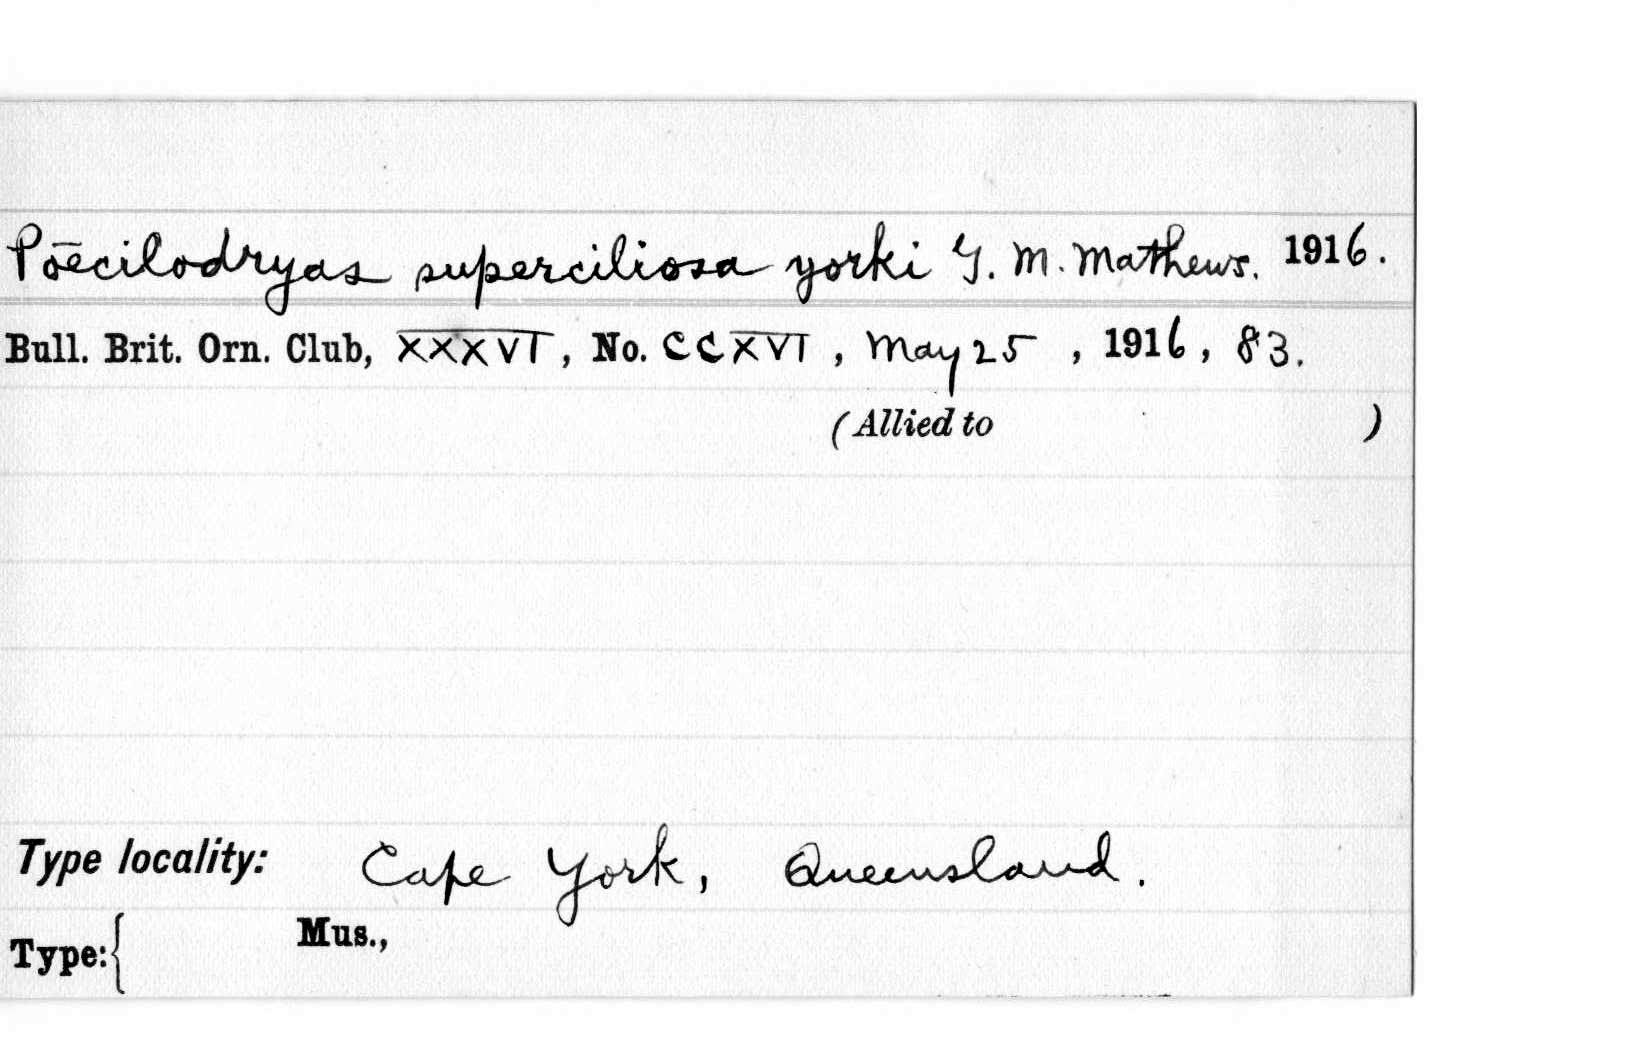 Poecilodryas superciliosa yorki G. M. Mathews. 1916.
Bull. Brit. Orn. Club, XXXVI, No. CCXVI, May 25, 1916, 83.
(Allied to )
Type locality: Cape York, Queensland.
Type:{ Mus.,